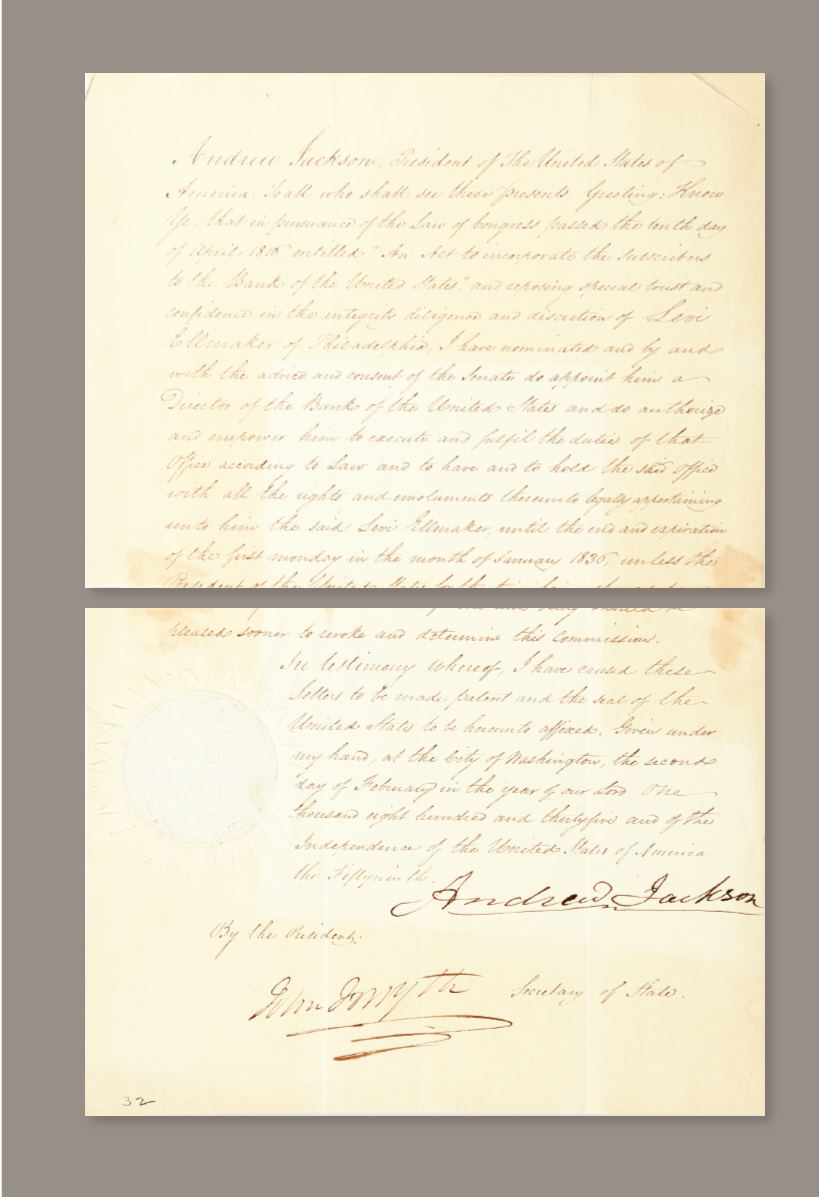 Andrew Jackson, President of the United States of
America, to all who shall see these presents, Greeting: Know
Ye, that in pursuance of the Law of Congress passed the tenth day
of April 1816, entitled "An Act to incorporate the Subscribers
to the Bank of the United States", and reposing special trust and
confidence in the integrity diligence and discretion of Levi
Ellmaker of Philadelphia, I have nominated and by and
with the advice and consent of the Senate do appoint him a
Director of the Bank of the United States and do authorize
and empower him to execute and fulfil the duties of that
Office according to Law and to have and to hold the said Office
with all the rights and emoluments thereunto legally appertaining
unto him the said Levi Ellmaker, until the end and expiration
of the first monday in the month of January 1836, unless the
President of the United States for the time being should be
pleased sooner to revoke and determine this Commission.
In testimony whereof, I have caused these
Letters to be made patent and the seal of the
United States to be hereunto affixed. Given under
my hand, at the City of Washington, the second
day of February in the year of our Lord One
thousand eight hundred and thirtyfive and of the
Independence of the United States of America
the Fiftyninth.
Andrew Jackson
By the President:
John Forsyth Secretary of State.
32